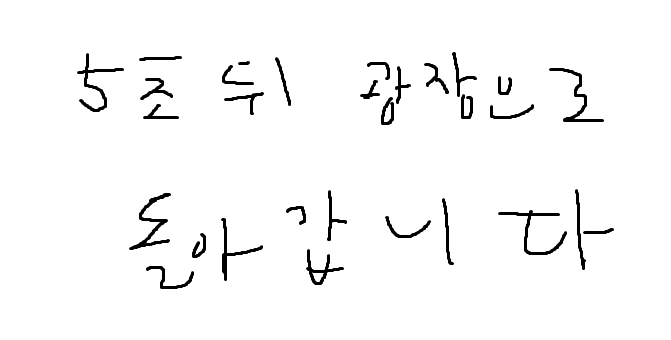 5초 뒤 광장으로
돌아갑니다